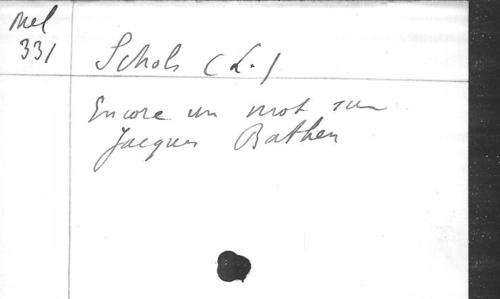 Mel
331
Schols (L.)
Encore un mot sur
Jacques Bathen